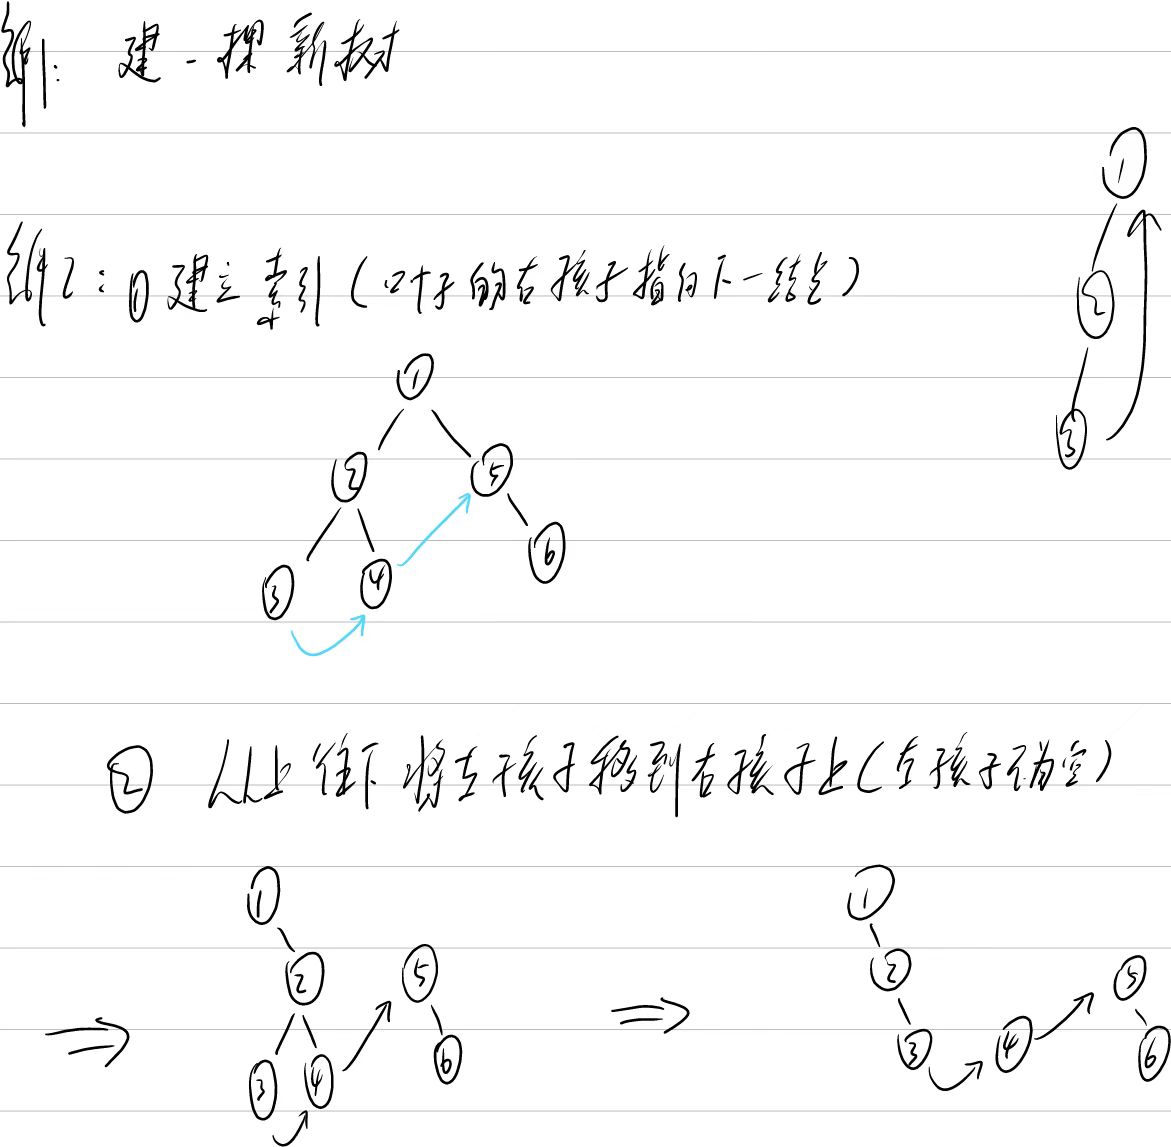 解1: 建一棵新树
解2: ① 建立索引 (叶子的右孩子指向下一结点)
1
2
3
1
2
5
3
4
6
② 从上往下将左孩子移到右孩子上 (左孩子不为空)
1
2
5
3
4
6
1
2
5
3
4
6